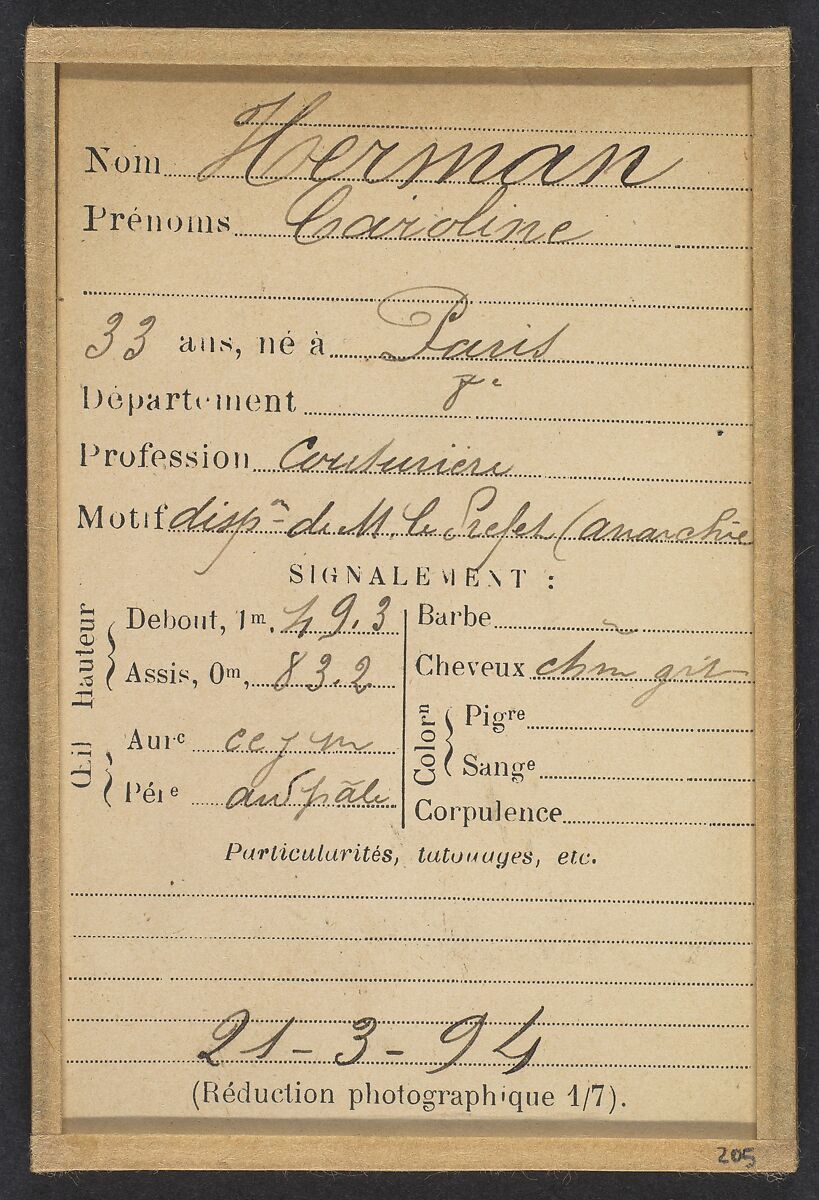 Nom Herman
Prénoms Caroline
33 ans, né à Paris
Département
Profession Couturière
Motif dispⁿ de M. le Préfet (anarchie
SIGNALEMENT :
Hauteur
Debout, 1ᵐ. 49.3
Assis, 0ᵐ, 83.2
Œil
Aurᶜ
Périᵉ pâle
Barbe
Cheveux
Colorⁿ
Pigʳᵉ
Sangᵉ
Corpulence
Particularités, tatouages, etc.
21-3-94
(Réduction photographique 1/7).
205